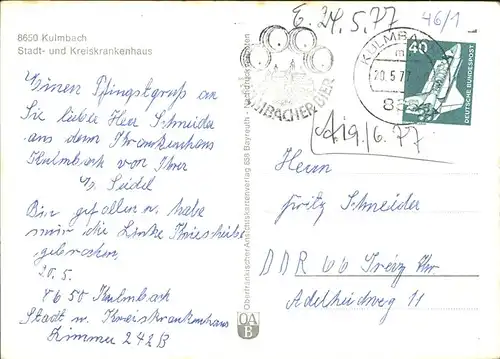 8650 Kulmbach
Stadt- und Kreiskrankenhaus
Einen Pfingstgruß an
Sie lieber Herr Schneider
aus dem Krankenhaus
Kulmbach von Ihrer
Seidel
Bin gefallen u. habe
mir die Linke Kniescheibe
gebrochen
20.5.
8650 Kulmbach
Stadt u. Kreiskrankenhaus
Zimmer 242B
Oberfränkischer Ansichtskartenverlag 858 Bayreuth
OA
B
E. 24.5.77
46/1
KULMBACHER BIER
KULMBA
20.5.77
865
40
DEUTSCHE BUNDESPOST
19./6.77
Herrn
Fritz Schneider
DDR 66 Greiz Thr
Adelheidweg 11